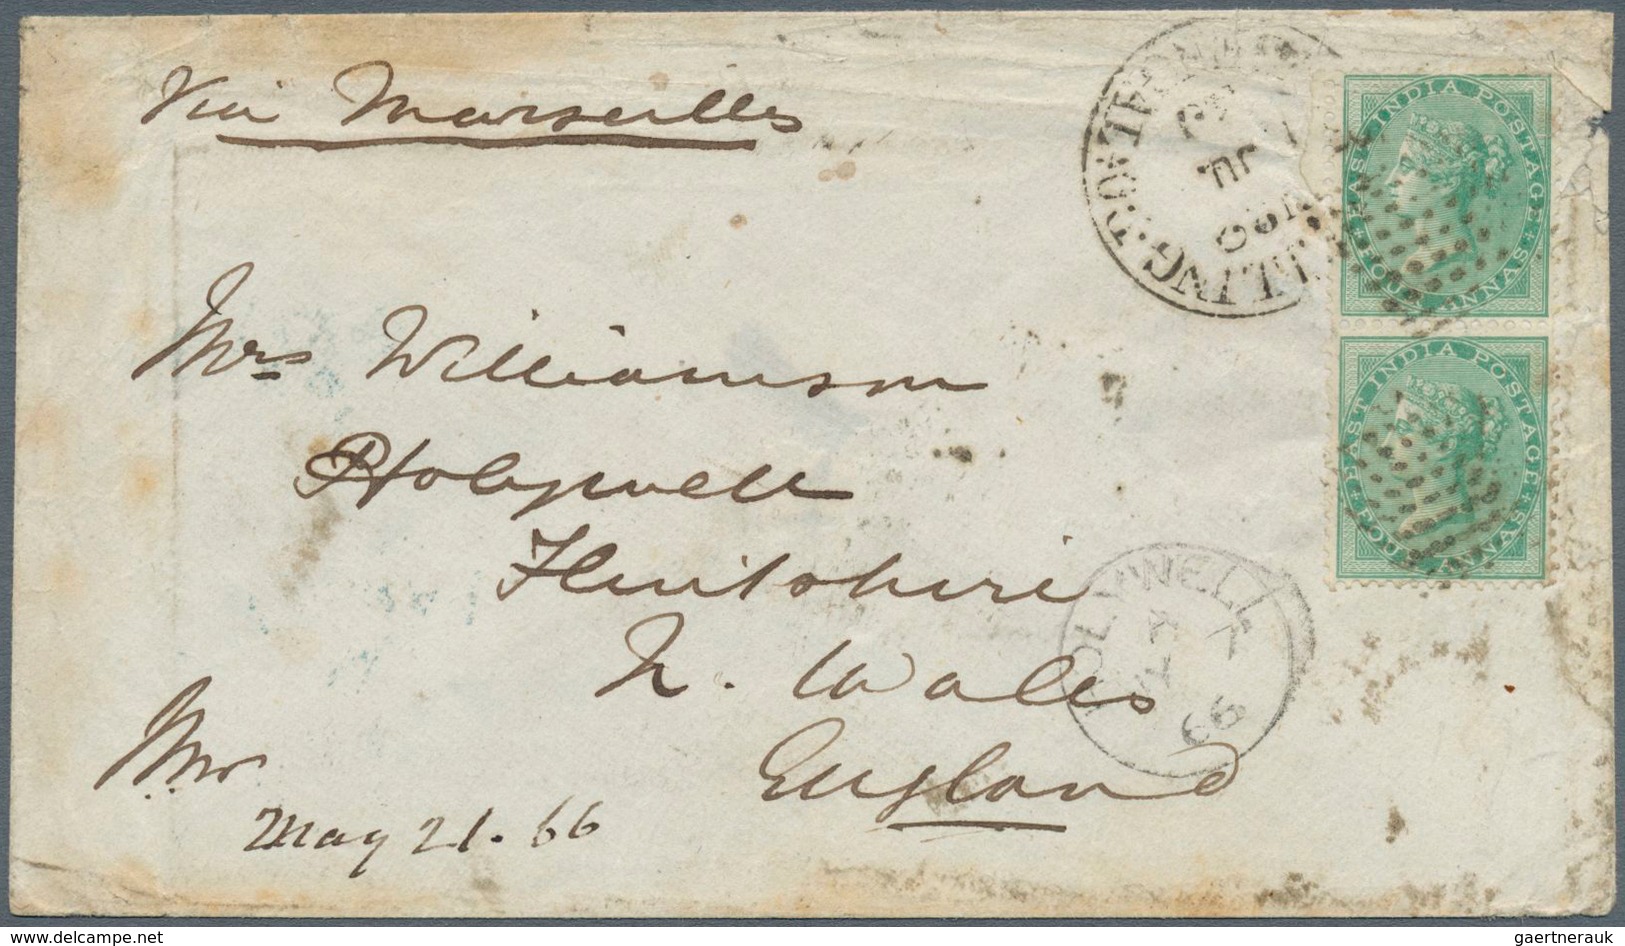 Via Marseilles
EAST INDIA POSTAGE
FOUR ANNAS
EAST INDIA POSTAGE
FOUR ANNAS
JU
66
Mrs Williamson
Holywell
Flintshire
N. Wales
England
HOLYWELL
66
May 21. 66
delcampe.net
gaertnerauk